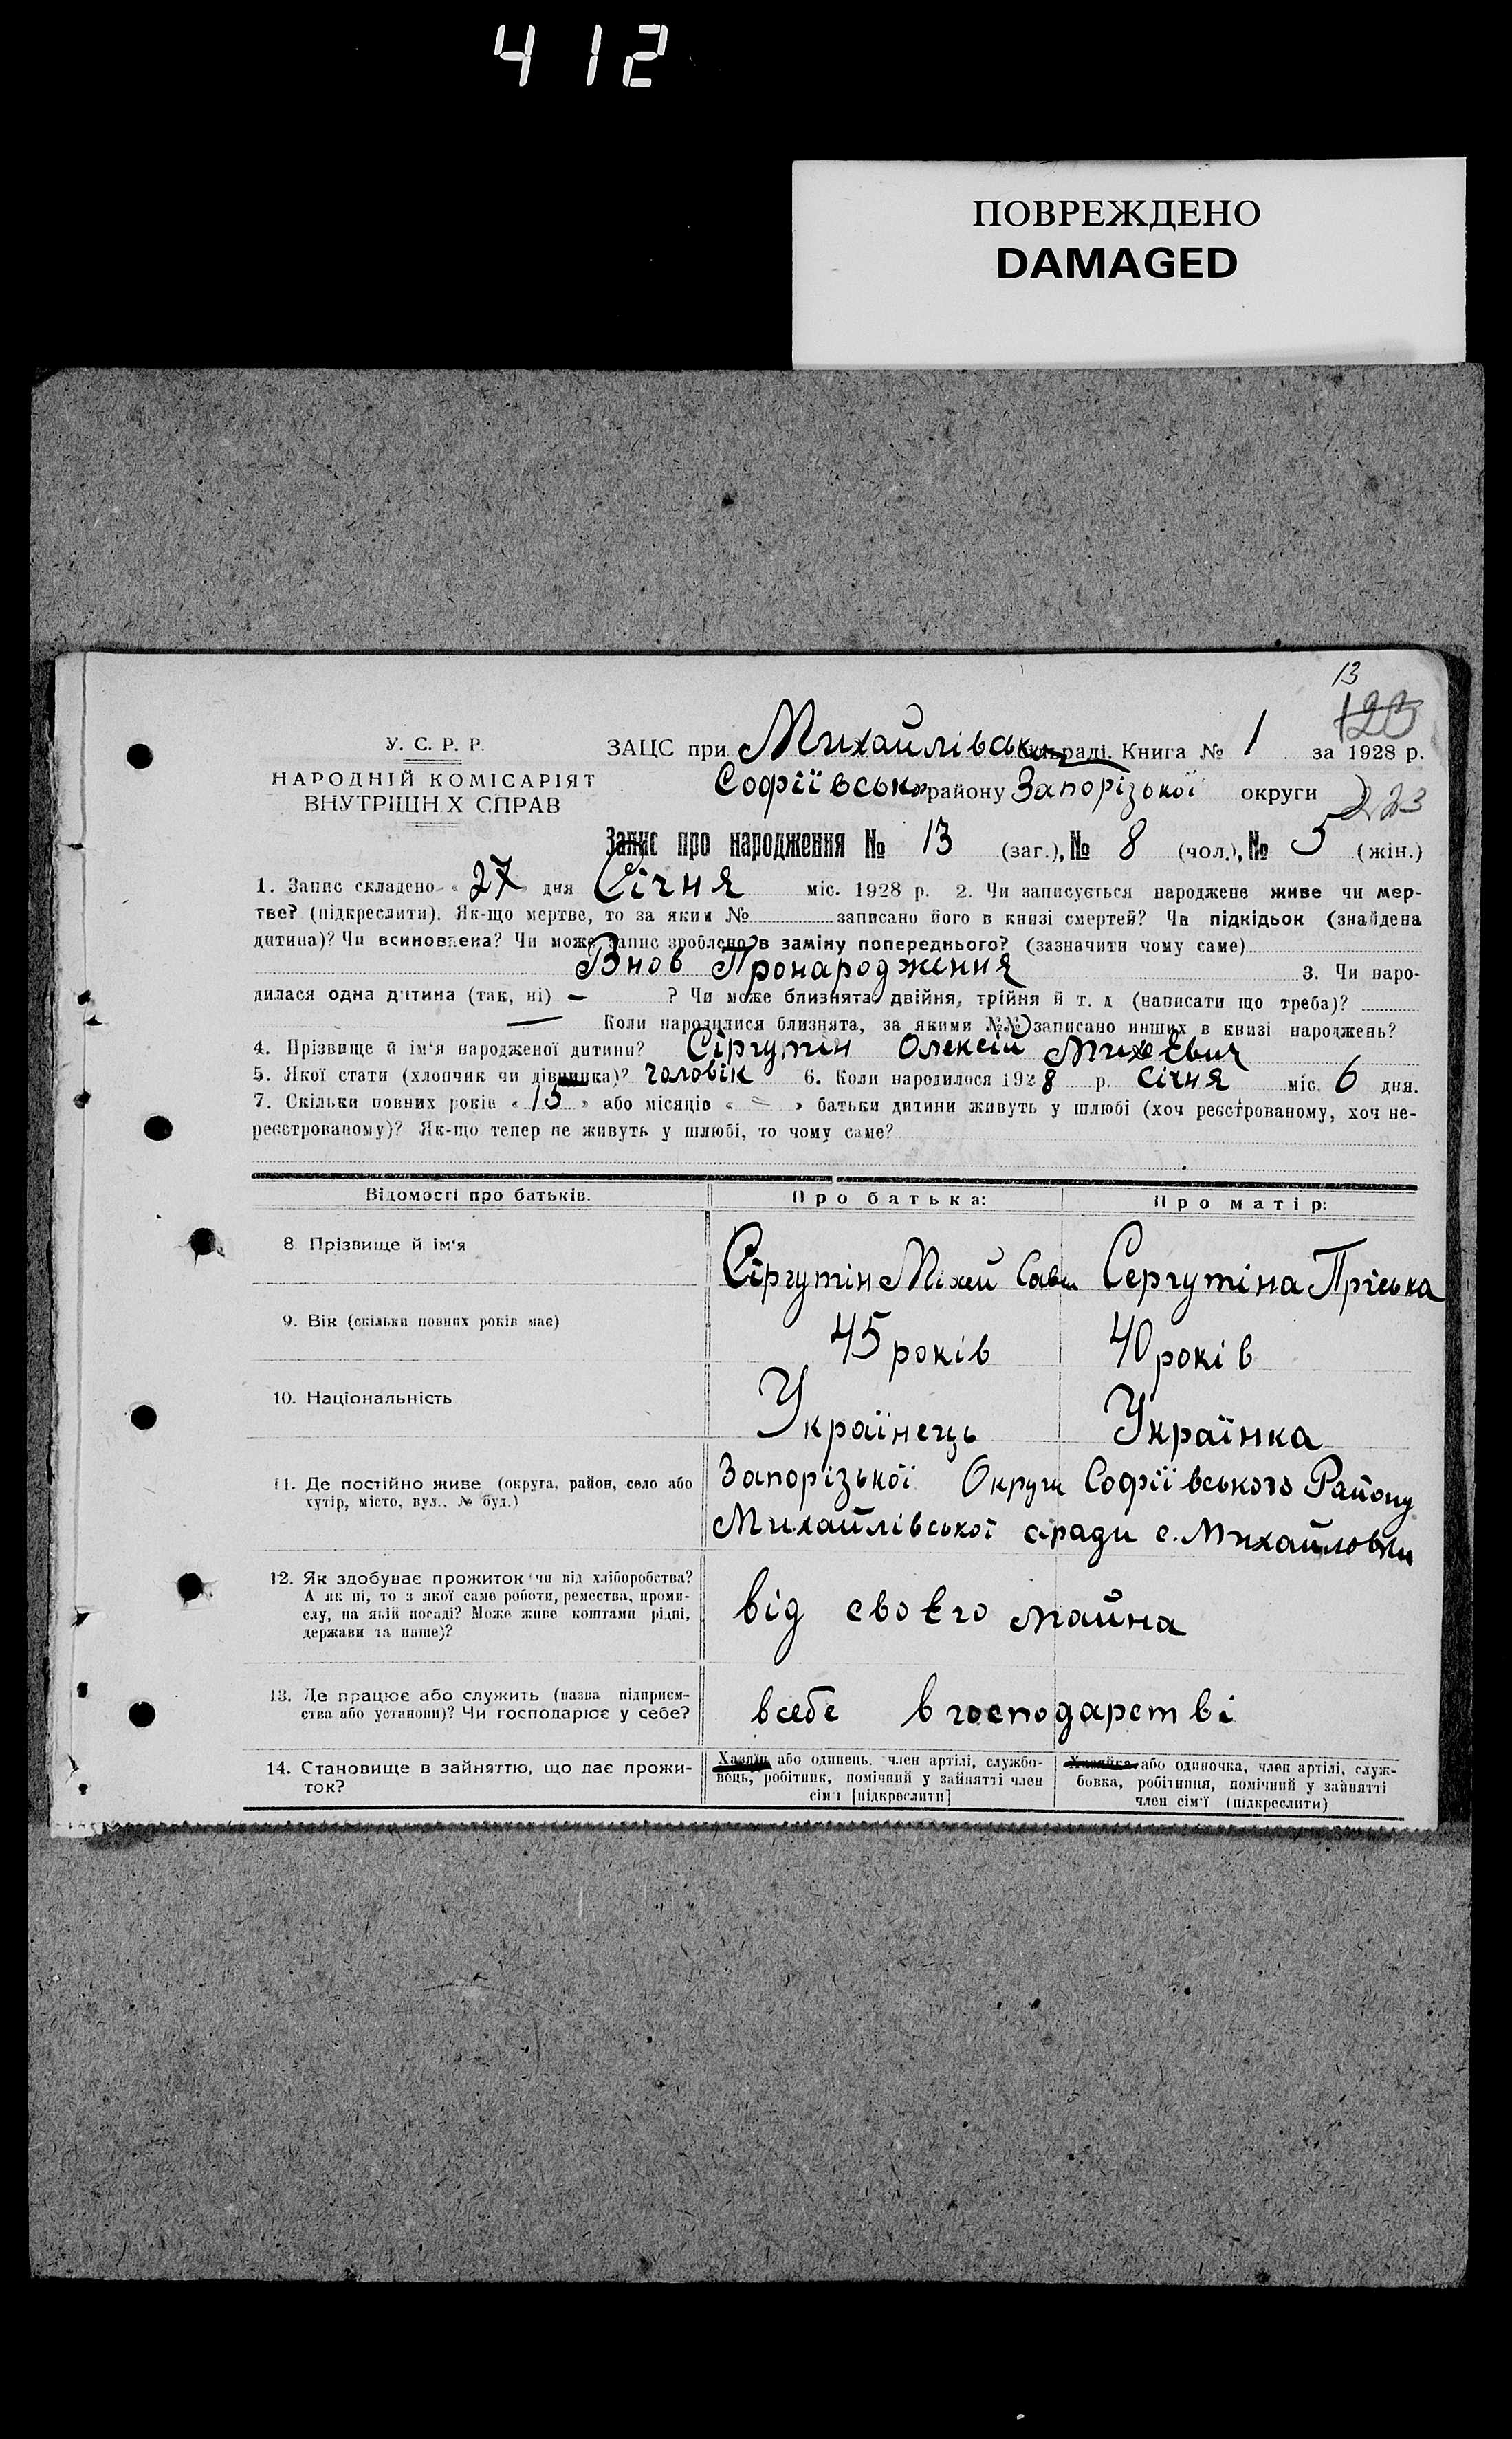 412
ПОВРЕЖДЕНО
DAMAGED
13
123
У. С. Р. Р.
НАРОДНІЙ КОМІСАРІЯТ
ВНУТРІШН Х СПРАВ
ЗАЦС при Михайлівськ раді. Книга № 1 за 1928 р.
Софіївськ району Запорізької округи
223
Запис про народження № 13 (заг.), № 8 (чол.), № 5 (жін.)
1. Запис складено « 27 » дня Січня міс. 1928 р. 2. Чи записується народжене живе чи мер-
тве? (підкреслити). Як-що мертве, то за яким № записано його в книзі смертей? Чи підкідьок (знайдена
дитина)? Чи всиновлена? Чи може запис зроблено в заміну попереднього? (зазначити чому саме)
Внов Пронародження 3. Чи наро-
дилася одна дитина (так, ні) — ? Чи може близнята, двійня, трійня й т. д (написати що треба)?
— Коли народилися близнята, за якими №№ записано инших в книзі народжень?
4. Прізвище й ім'я народженої дитини? Сіргутін Олексій Михеєвич
5. Якої статі (хлопчик чи дівчинка)? чоловік 6. Коли народилося 1928 р. Січня міс. 6 дня.
7. Скільки повних років « 15 » або місяців « — » батьки дитини живуть у шлюбі (хоч реєстрованому, хоч не-
реєстрованому)? Як-що тепер не живуть у шлюбі, то чому саме?
Відомості про батьків. Про батька: Про матір:
8. Прізвище й ім'я Сіргутін Міхей Сави Сергутіна Пріська
9. Вік (скільки повних років має) 45 років 40 років
10. Національність Українець Українка
11. Де постійно живе (округа, район, село або
хутір, місто, вул., № буд.)
Запорізької Округи Софіївського Району
Михайлівської сради с. Михайловки
12. Як здобуває прожиток чи від хліборобства?
А як ні, то з якої саме роботи, ремества, проми-
слу, на якій посаді? Може живе коштами рідні,
держави та инше)?
від своєго майна
13. Де працює або служить (назва підприєм-
ства або установи)? Чи господарює у себе?
всебе в господарстві
14. Становище в зайняттю, що дає прожи-
ток?
Хазяїн або одинець. член артілі, службо-
вець, робітник, помічний у зайнятті член
сім'ї [підкреслити]
Хазяйка або одиночка, член артілі, служ-
бовка, робітниця, помічний у зайнятті
член сім'ї (підкреслити)